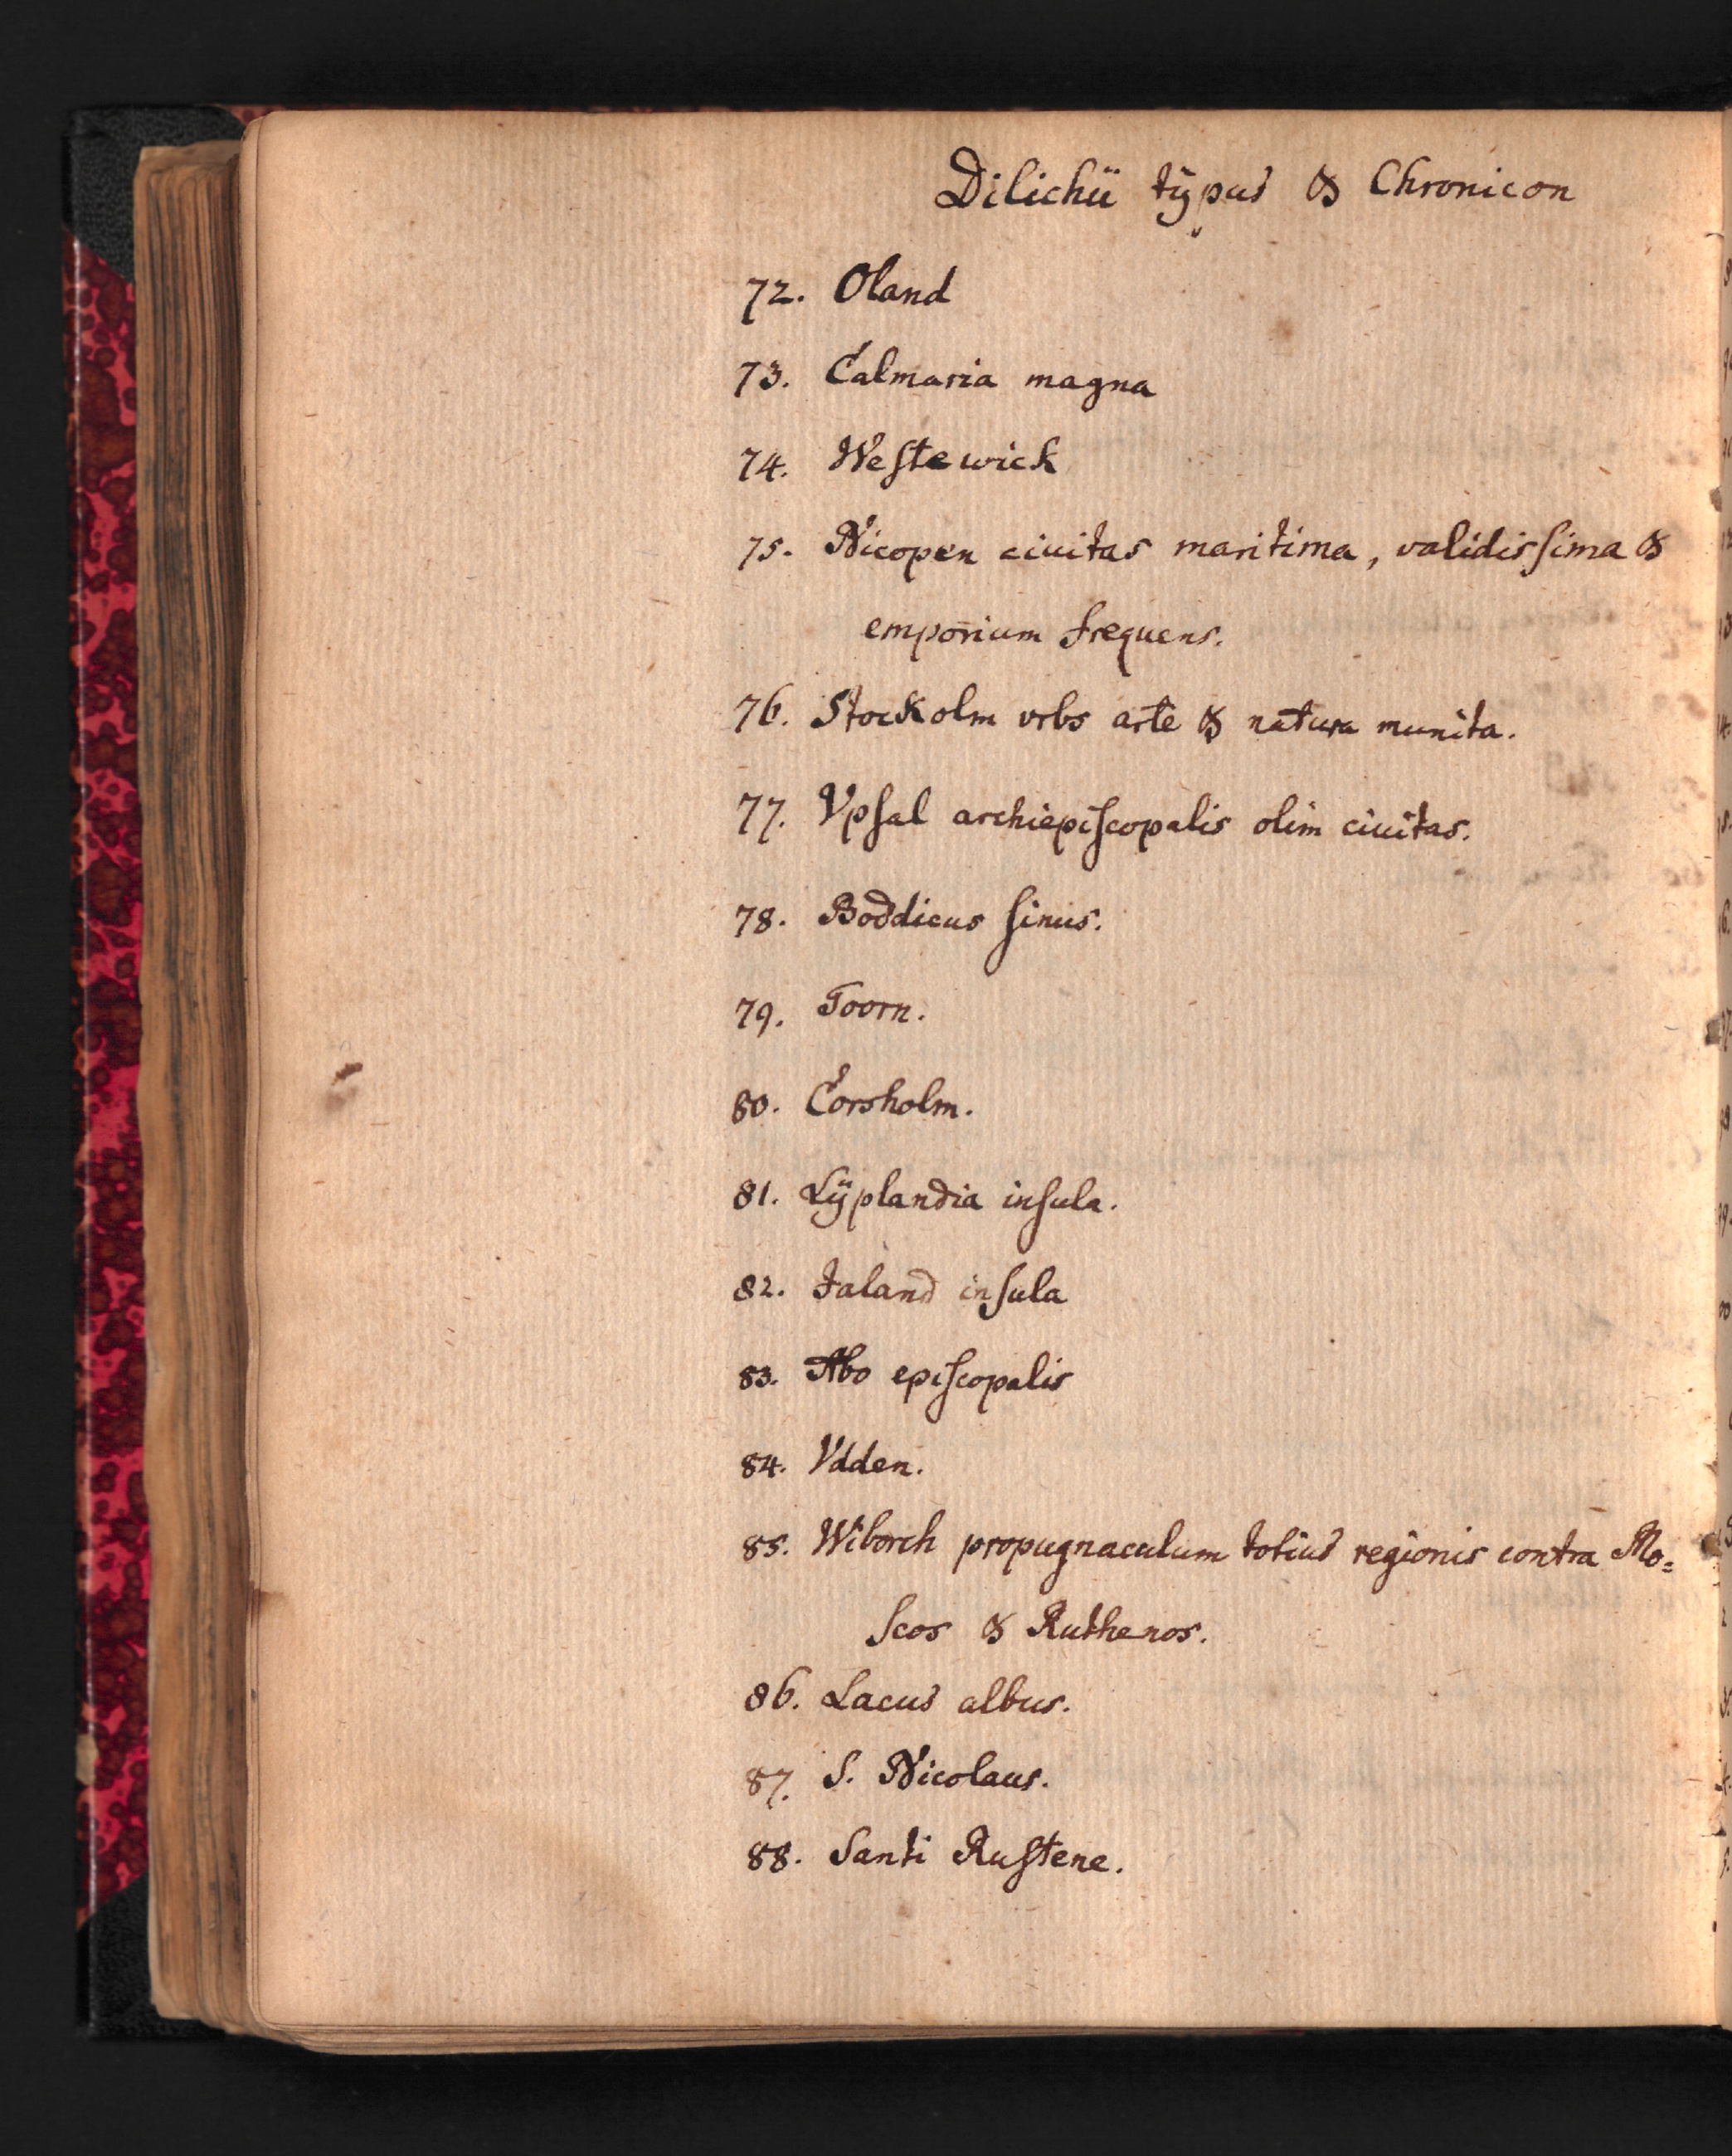 Dilichii typus & Chronicon
72. Oland
73. Calmaria magna
74. Westewick
75. Nicopen ciuitas maritima, validissima &
emporium frequens.
76. Stockolm vrbs arte & natura munita.
77. Vpsal archiepiscopalis olim ciuitas.
78. Boddicus sinus.
79. Toorn.
80. Corsholm.
81. Lÿplandia insula.
82. Jaland insula
83. Abo episcopalis
84. Vdden.
85. Wiborch propugnaculum totius regionis contra Mo=
scos & Ruthenos.
86. Lacus albus.
87. S. Nicolaus.
88. Santi Rustene.